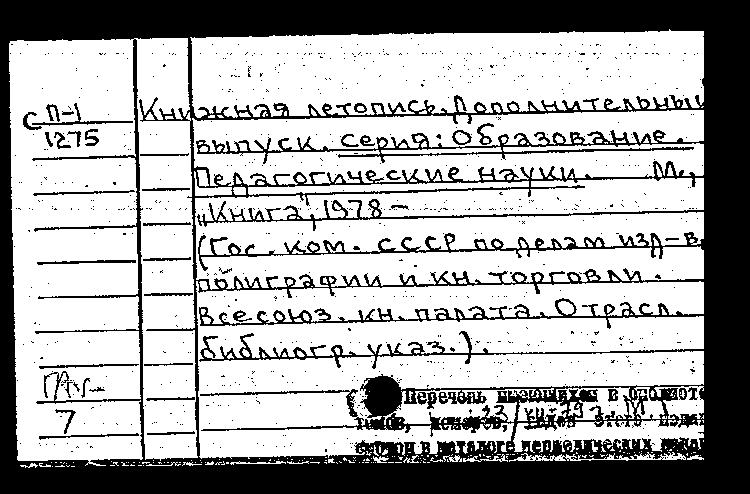 С П-1
1275
Книжная летопись. Дополнительный
выпуск. Серия: Образование.
Педагогические науки. М.,
„Книга", 1978 –
(Гос. ком. СССР по делам изд-в,
полиграфии и кн. торговли.
Всесоюз. кн. палата. Отрасл.
библиогр. указ.).
7
Перечень имеющихся в библиоте
томов, номеров, годов этого издан
смотри в каталоге периодических издан